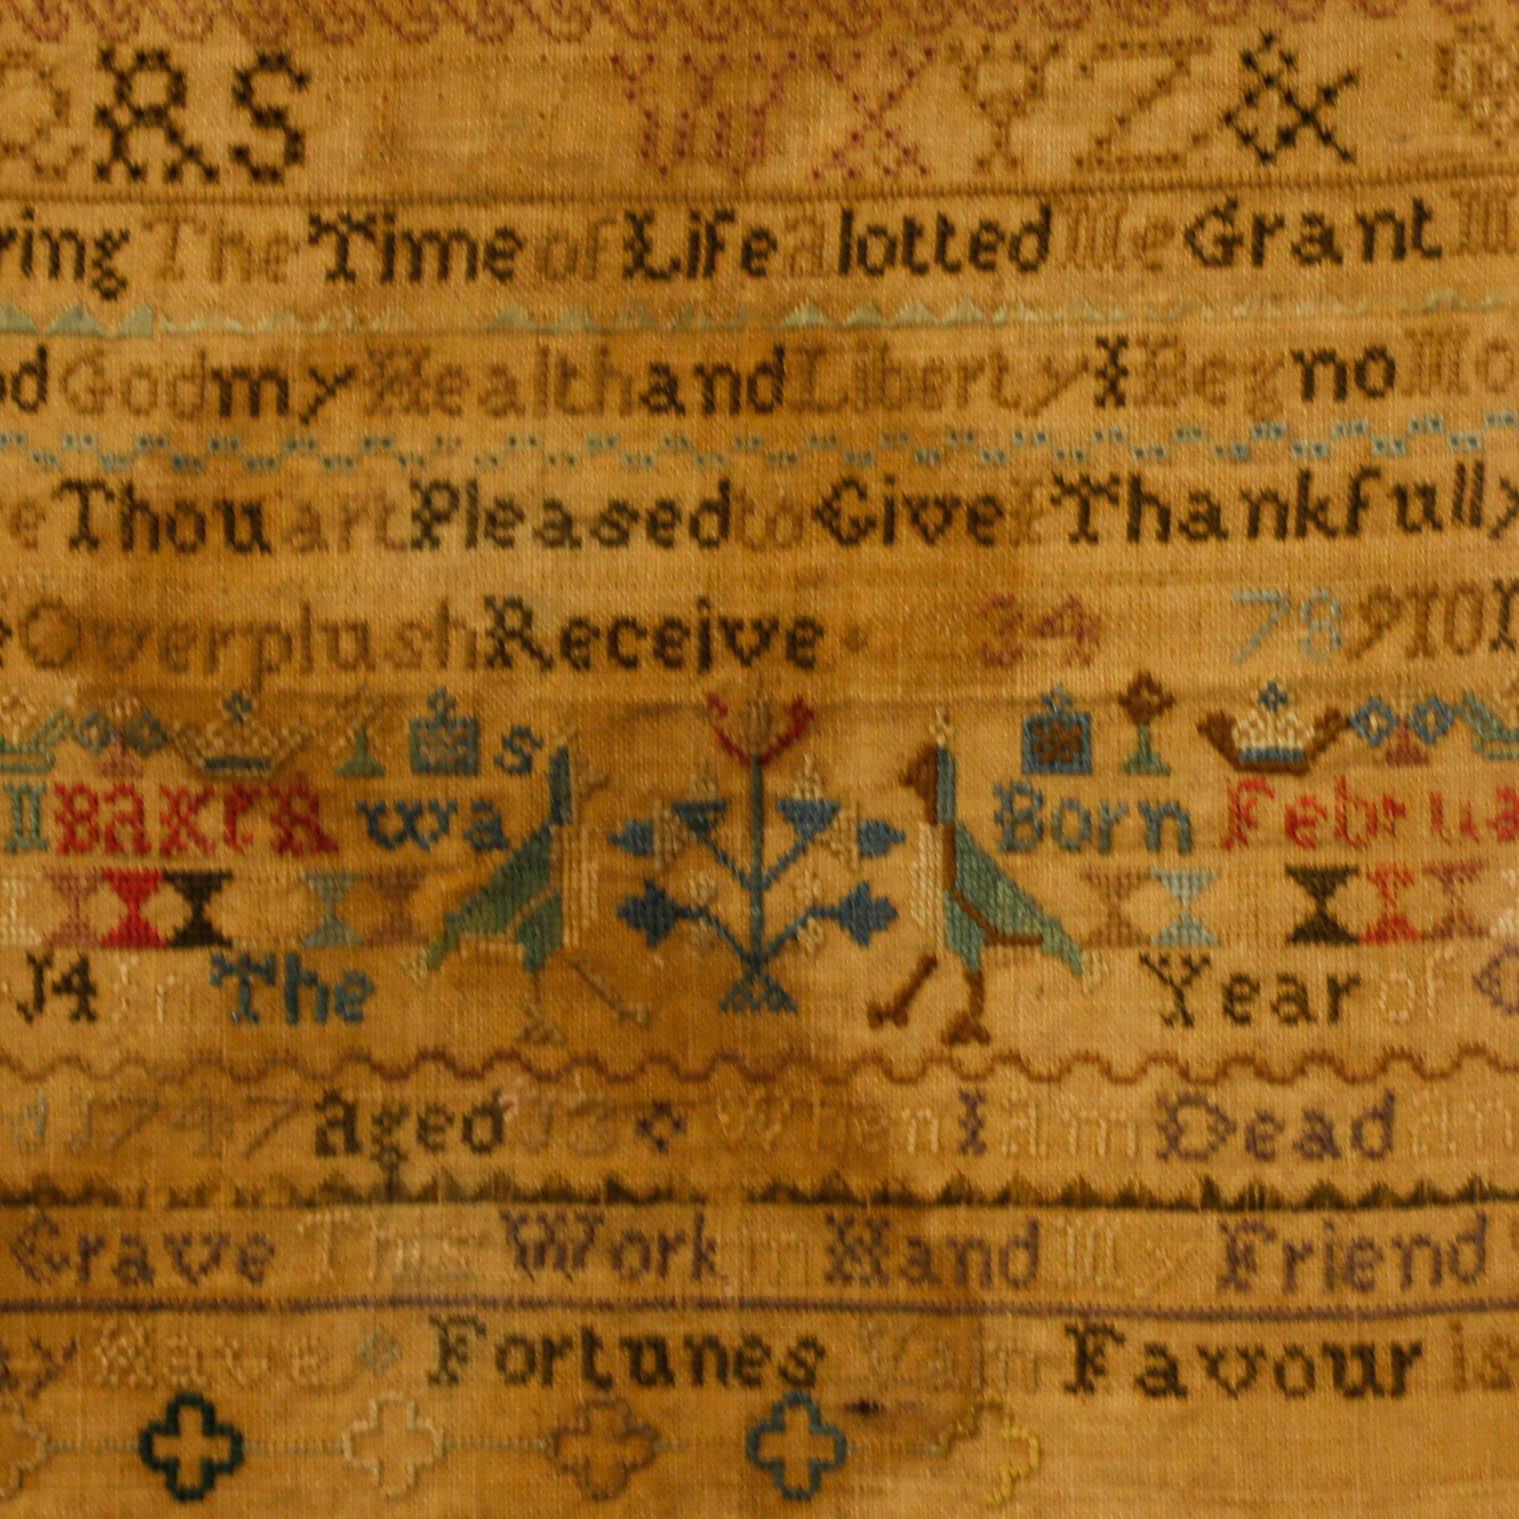 Q R S W X Y Z &
ring The Time of Life alotted Me Grant
od God my Health and Liberty I Beg no Mo
e Thou art Pleased to Give I Thankfully
e Overplush Receive 3 4 7 8 9 10
BAXER was Born Februa
14 The Year of
1747 Aged 13 When I am Dead an
Grave This Work in Hand My Friend
ay Have Fortunes Vain Favour is